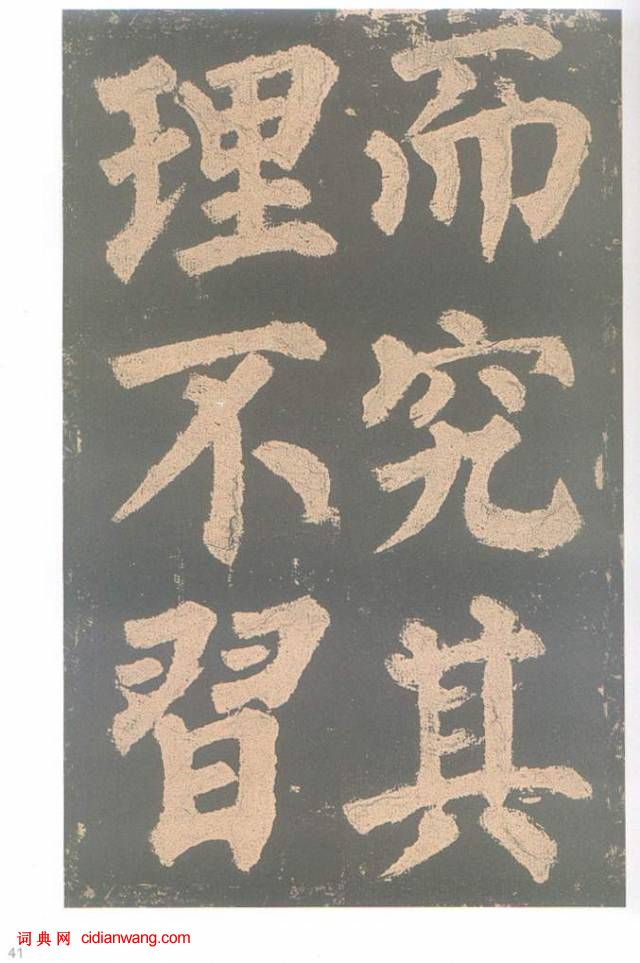 而究其
理不習
词典网 cidianwang.com
41